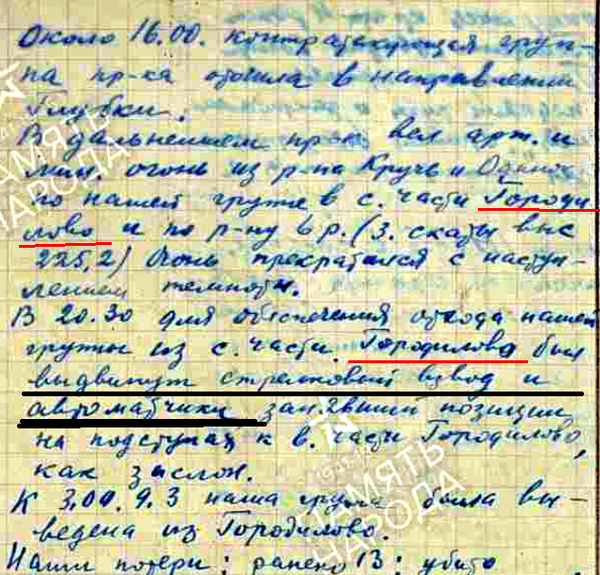 Около 16.00. контратакующая груп-
па пр-ка отошла в направлении
Глубки.
В дальнейшем пр-к вел арт. и
мин. огонь из р-на Кручь и
по нашей группе в с. части Городи
лово и по р-ну 6 р. (З. скаты выс
225,2) Огонь прекратился с наступ-
лением темноты.
В 20.30 для обеспечения отхода нашей
группы из с. части Городилова был
выдвинут стрелковый взвод и
автоматчики занявший позиции
на подступах к в. части Городилово,
как заслон.
К 3.00. 9.3 наша группа была вы-
ведена из Городилово.
Наши потери: ранено 13; убито
ПАМЯТЬ
НАРОДА
ПАМЯТЬ
НАРОДА